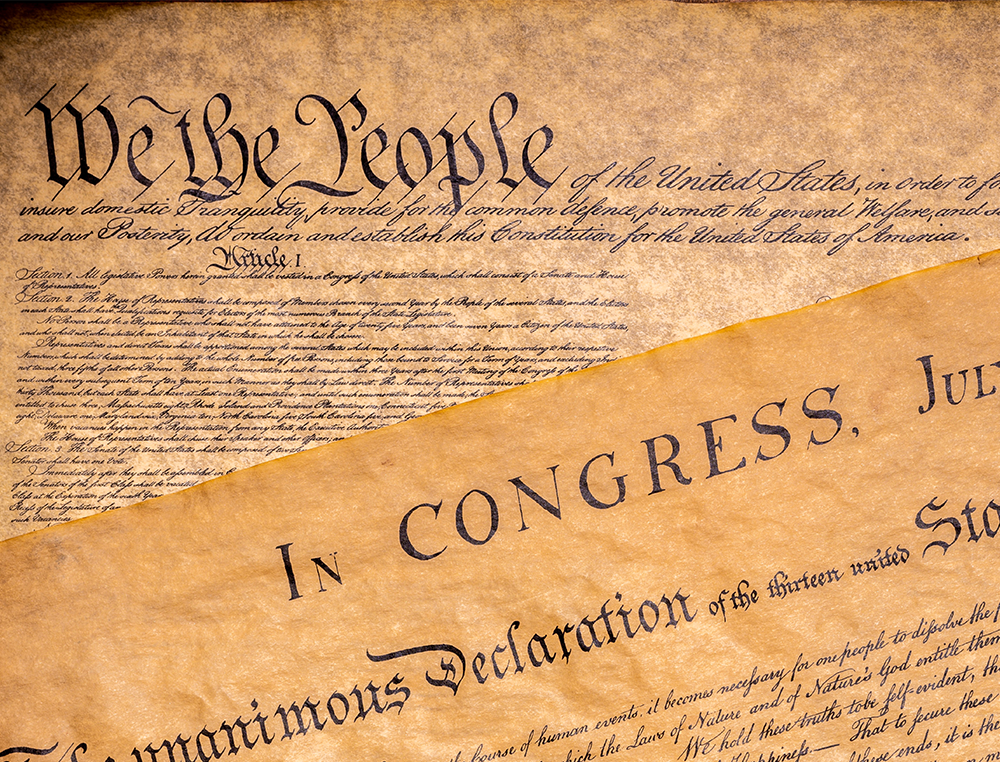 We the People of the United States, in order to fo
insure domestic Tranquility, provide for the common defence, promote the general Welfare, and s
and our Posterity, do ordain and establish this Constitution for the United States of America.
Article. I
Section. 1. All legislative Powers herein granted shall be vested in a Congress of the United States, which shall consist of a Senate and House
of Representatives.
Section. 2. The House of Representatives shall be composed of Members chosen every second Year by the People of the several States, and the Electors
in each State shall have Qualifications requisite for Electors of the most numerous Branch of the State Legislature.
No Person shall be a Representative who shall not have attained to the Age of twenty five Years, and been seven Years a Citizen of the United States,
and who shall not, when elected, be an Inhabitant of that State in which he shall be chosen.
Representatives and direct Taxes shall be apportioned among the several States which may be included within this Union, according to their respective
Numbers, which shall be determined by adding to the whole Number of free Persons, including those bound to Service for a Term of Years, and excluding
not taxed, three fifths of all other Persons. The actual Enumeration shall be made within three Years after the first Meeting of the Congress of the
and within every subsequent Term of ten Years, in such Manner as they shall by Law direct. The Number of Representatives
thirty Thousand, but each State shall have at Least one Representative; and until such enumeration shall be made, the
entitled to chuse three, Massachusetts eight, Rhode Island and Providence Plantations one, Connecticut five
eight, Delaware one, Maryland six, Virginia ten, North Carolina five, South Carolina
When vacancies happen in the Representation from any State, the Executive
The House of Representatives shall chuse their Speaker and other Officers;
Section. 3. The Senate of the United States shall be composed of two
Senator shall have one Vote.
Immediately after they shall be assembled in
of the Senators of the first Class shall be vacated
Class at the Expiration of the sixth Year
Recess of the Legislature of
such Vacancies.
IN CONGRESS, JULY
The unanimous Declaration of the thirteen united Sta
Course of human events, it becomes necessary for one people to dissolve the
which the Laws of Nature and of Nature's God entitle them
We hold these truths to be self-evident, tha
Happiness.— That to secure these
these ends, it is the